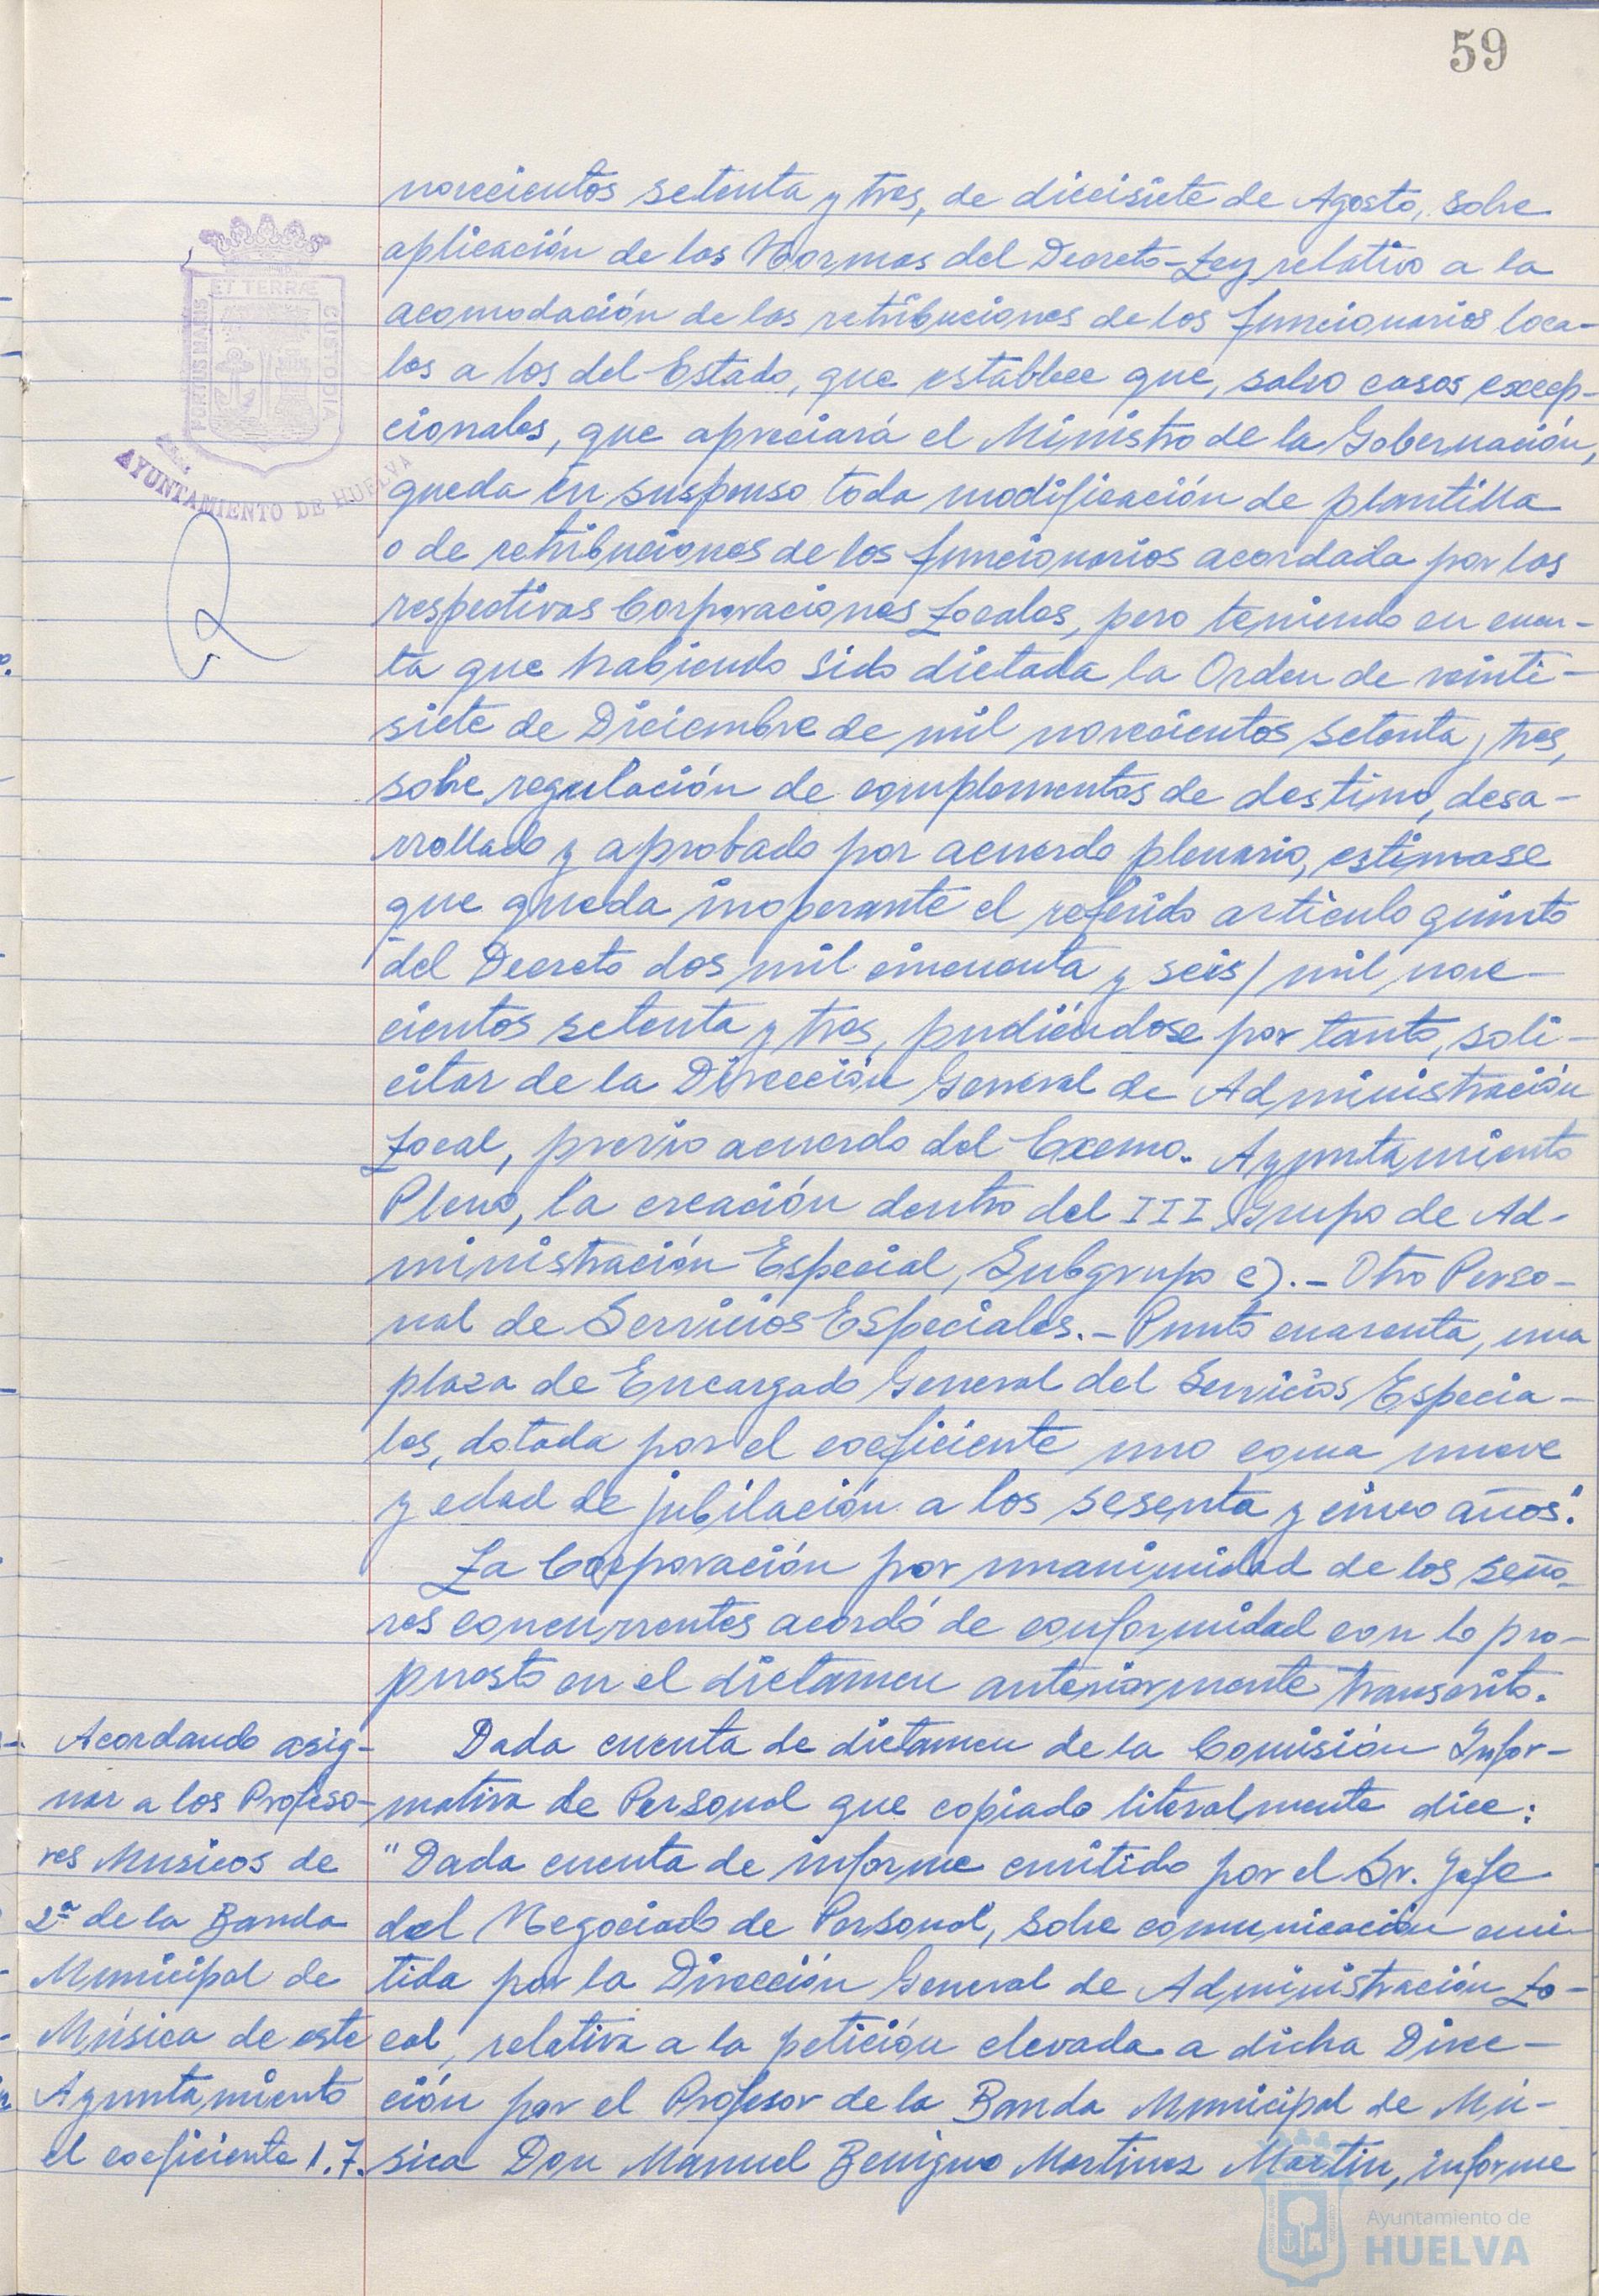 59
novecientos setenta y tres, de diecisiete de Agosto, sobre
aplicación de las Normas del Decreto-Ley relativo a la
acomodación de las retribuciones de los funcionarios loca-
les a los del Estado, que establece que, salvo casos excep-
cionales, que apreciará el Ministro de la Gobernación,
queda en suspenso toda modificación de plantilla
o de retribuciones de los funcionarios acordada por las
respectivas Corporaciones Locales, pero teniendo en cuen-
ta que habiendo sido dictada la Orden de veinti-
siete de Diciembre de mil novecientos setenta y tres,
sobre regulación de complementos de destino, desa-
rrollado y aprobado por acuerdo plenario, estimase
que queda inoperante el referido artículo quinto
del Decreto dos mil cincuenta y seis/ mil nove-
cientos setenta y tres, pudiéndose por tanto, soli-
citar de la Dirección General de Administración
Local, previo acuerdo del Excmo. Ayuntamiento
Pleno, la creación dentro del III Grupo de Ad-
ministración Especial, Subgrupo c).- Otro Perso-
nal de Servicios Especiales.- Punto cuarenta, una
plaza de Encargado General del Servicios Especia-
les, dotada por el coeficiente uno coma nueve
y edad de jubilación a los sesenta y cinco años."
La Corporación por unanimidad de los seño-
res concurrentes acordó de conformidad con lo pro-
puesto en el dictamen anteriormente transcrito.
Dada cuenta de dictamen de la Comisión Infor-
mativa de Personal que copiado literalmente dice:
"Dada cuenta de informe emitido por el Sr. Jefe
del Negociado de Personal, sobre comunicación emi-
tida por la Dirección General de Administración Lo-
cal, relativa a la petición elevada a dicha Direc-
ción por el Profesor de la Banda Municipal de Mú-
sica Don Manuel Benigno Martinez Martin, informe
Acordando asig-
nar a los Profeso-
res Musicos de
2ª de la Banda
Municipal de
Música de este
Ayuntamiento
el coeficiente 1.7.
PORTUS MARIS
ET TERRÆ
CUSTODIA
AYUNTAMIENTO DE HUELVA
Ayuntamiento de
HUELVA